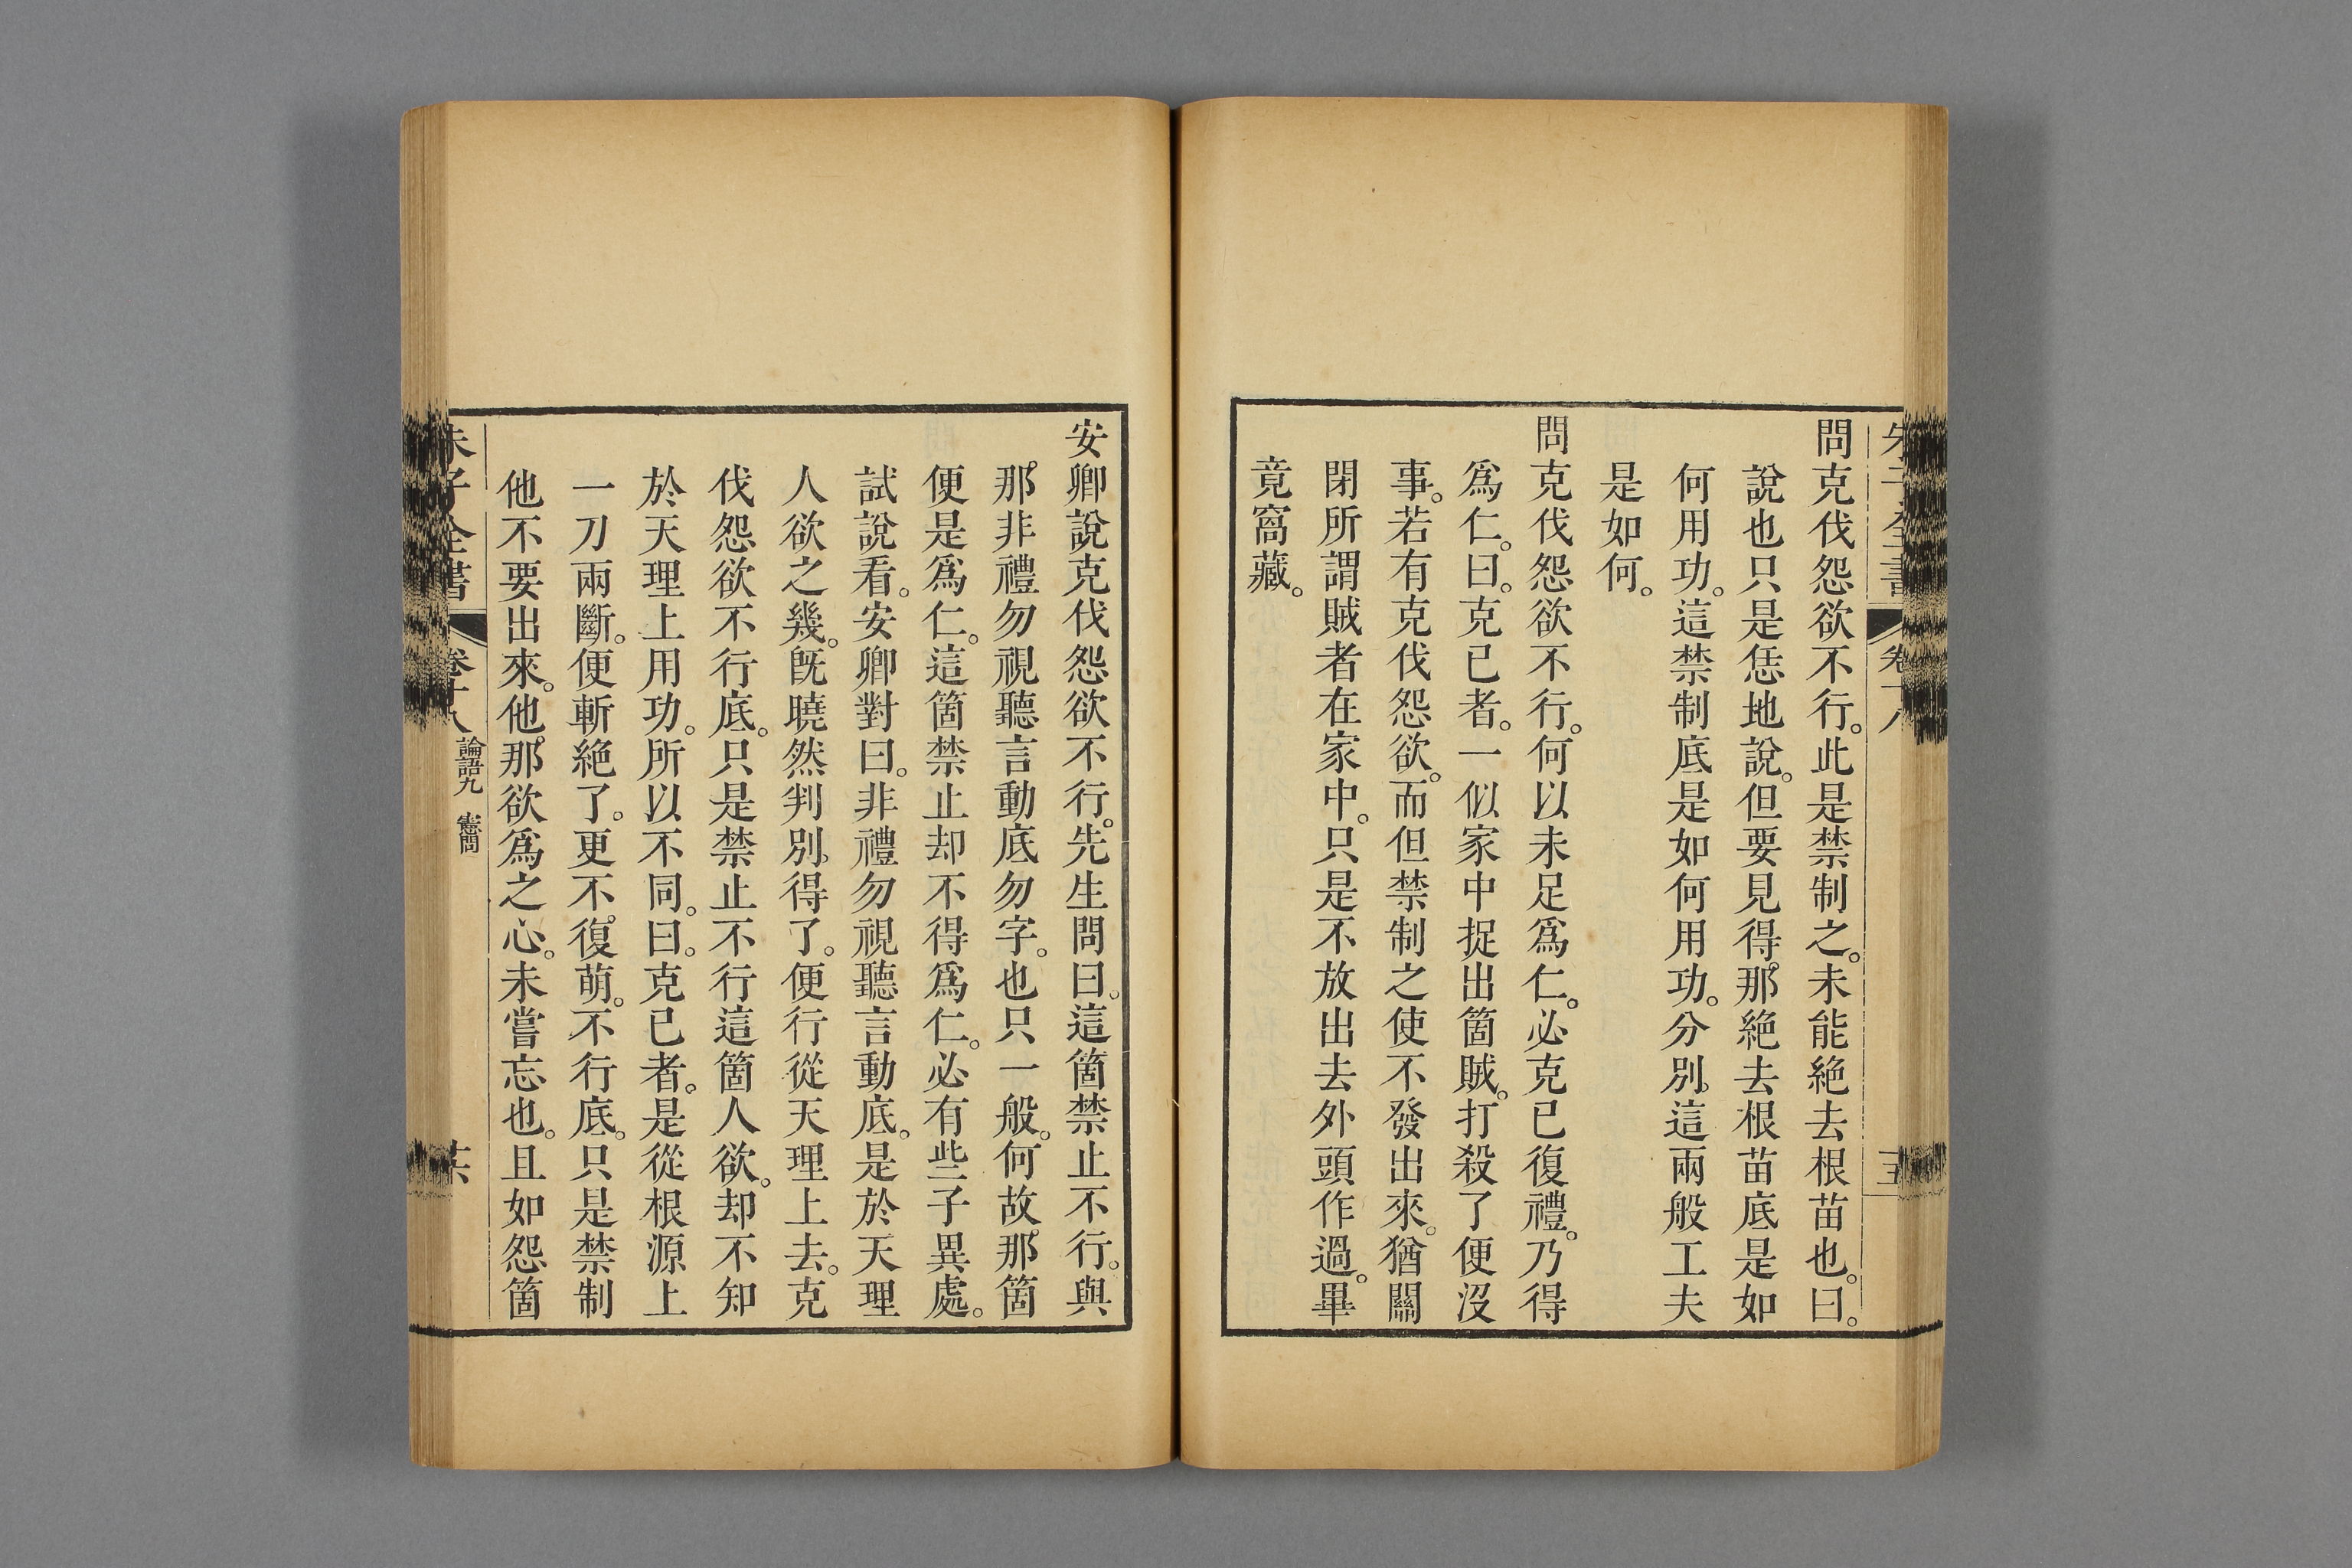 問克伐怨欲不行。此是禁制之。未能絶去根苗也。曰。
說也只是恁地說。但要見得。那絶去根苗底是如
何用功。這禁制底是如何用功。分別。這兩般工夫
是如何。
問克伐怨欲不行。何以未足爲仁。必克已復禮。乃得
爲仁。曰。克已者。一似家中捉出箇賊。打殺了便沒
事。若有克伐怨欲。而但禁制之使不發出來。猶關
閉所謂賊者在家中。只是不放出去外頭作過。畢
竟窩藏。
安卿說克伐怨欲不行。先生問曰。這箇禁止不行。與
那。非禮勿視聽言動底勿字。也只一般。何故。那箇
便是爲仁。這箇禁止却不得爲仁。必有些子異處。
試說看。安卿對曰。非禮勿視聽言動底。是於天理
人欲之幾。旣曉然判別。得了。便行從天理上去。克
伐怨欲不行底。只是禁止不行這箇人欲。却不知
於天理上用功。所以不同。曰。克已者。是從根源上
一刀兩斷。便斬絶了。更不。復萌。不行底。只是禁制
他不要出來。他。那欲爲之心。未嘗忘也。且如怨箇
朱子全書 卷十八 論語九 憲問